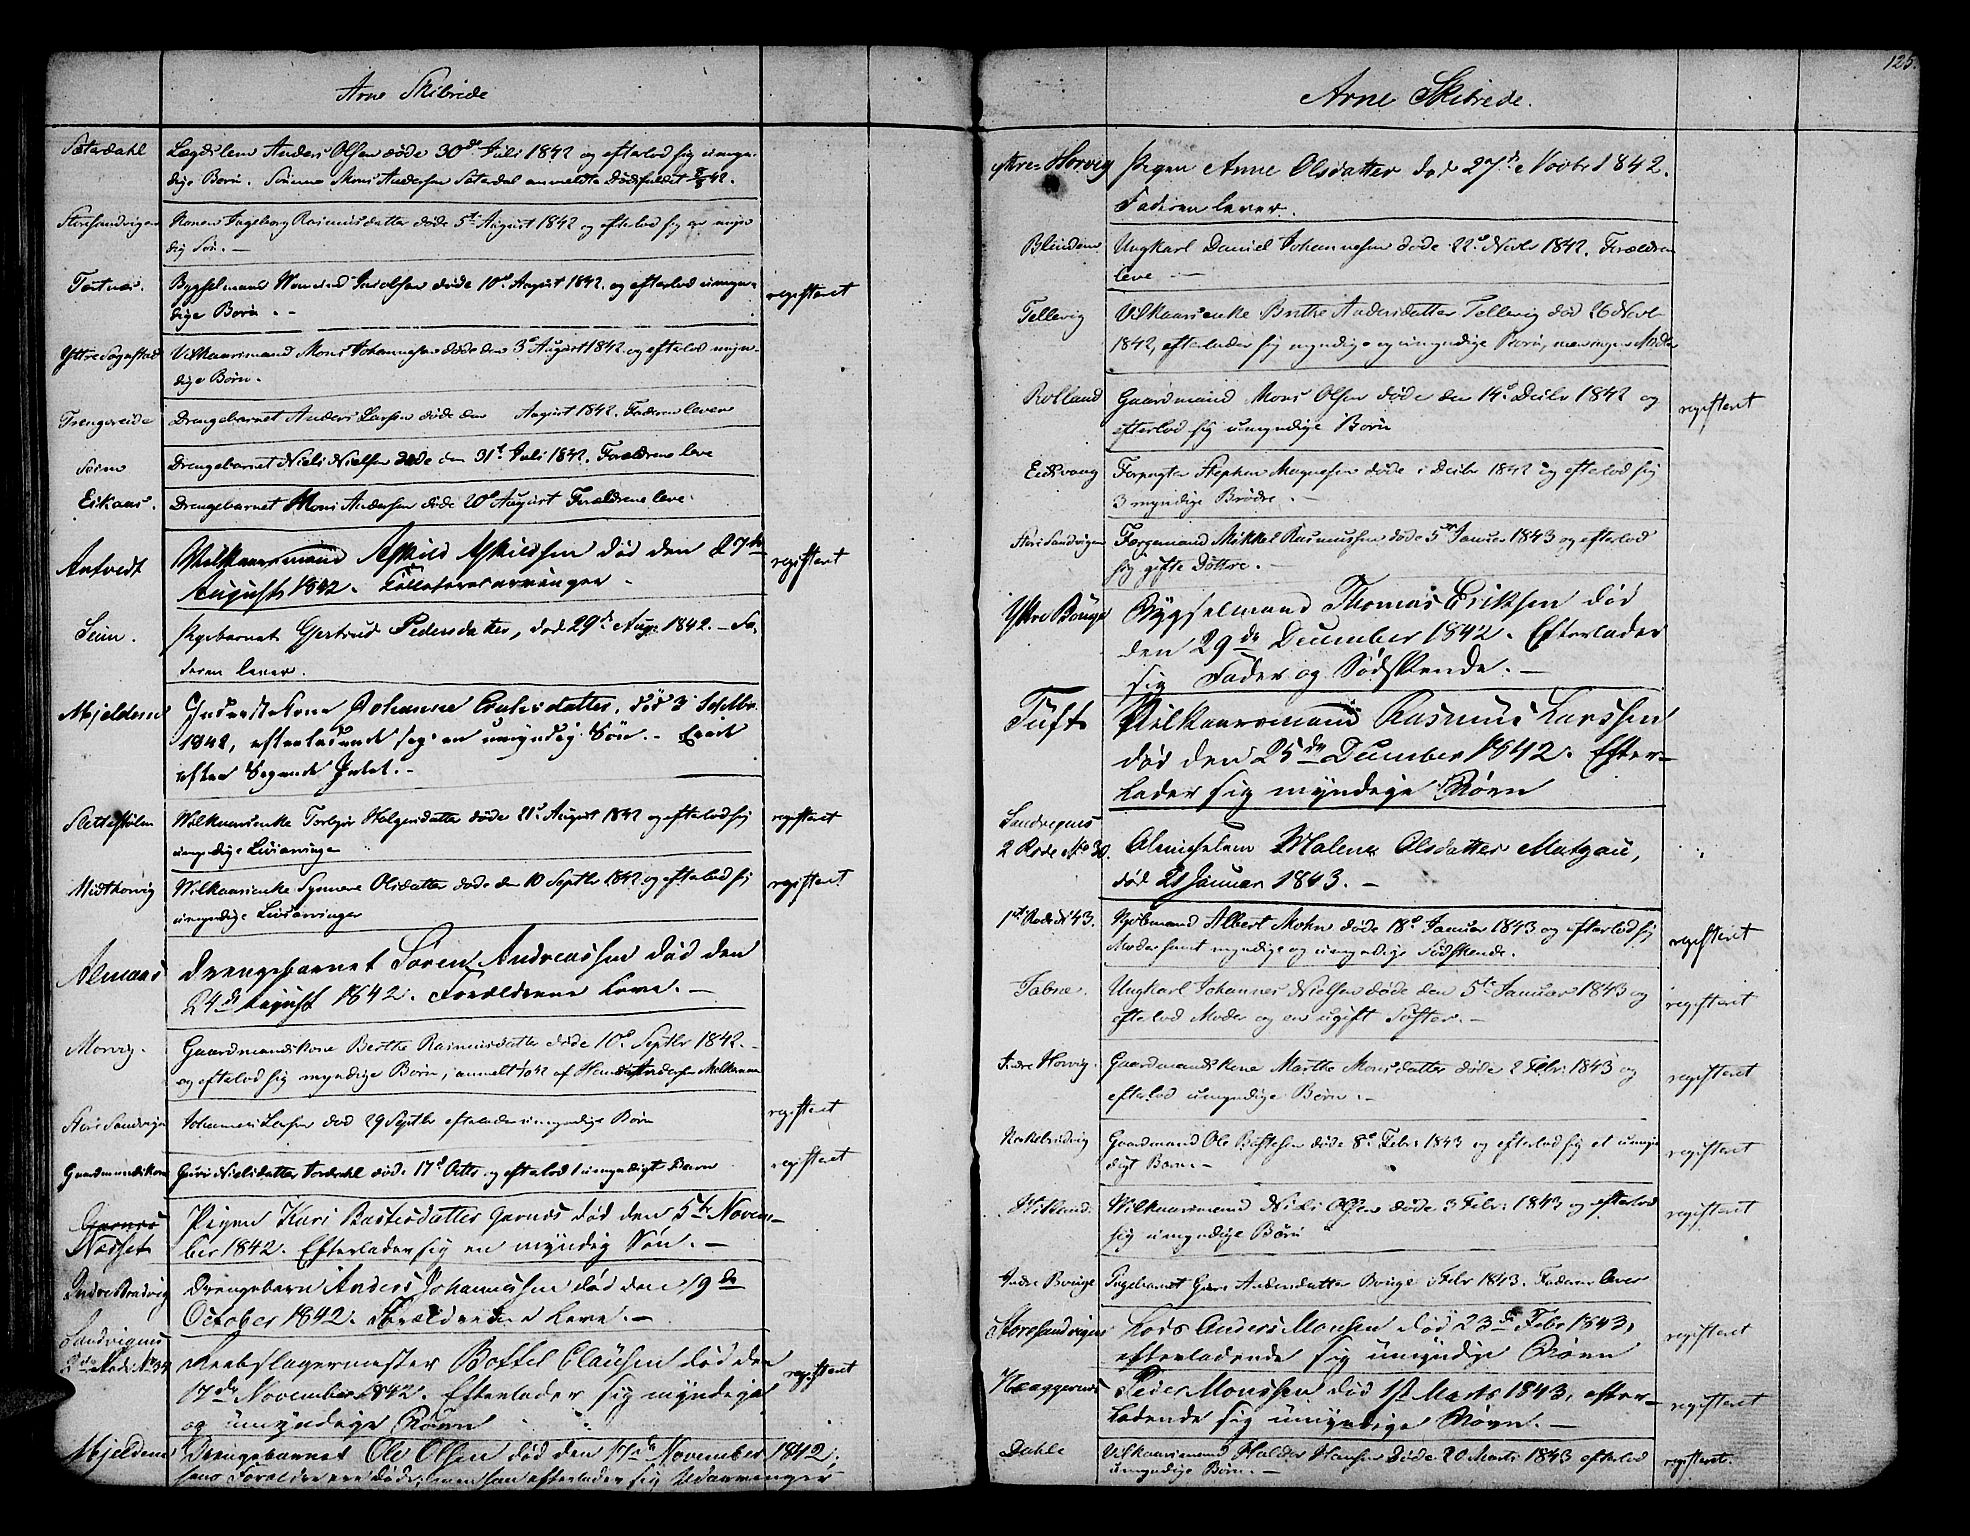 Arne Skibrede
Sæterdahl Lægdslem Anders Olsen døde 30de Juli 1842 og efterlod sig umyn-
dige Børn. Sønnen Mons Andersen Sæterdal anmeldte Dødsfaldet
Storesandvigen Konen Ingeborg Rasmusdatter døde 5te August 1842 og efterlod sig en myn-
dig Søn. —
Bygselmand Jacobsen døde 10de August 1842 og efterlod umyn- registeret
dige Børn. —
Yttre Vilkaarsmand Mons Johannesen døde den 3de August 1842 og efterlod myn-
dige Børn.
Trengereide Drengebarnet Anders Larsen døde den August 1842. Faderen lever
Drengebarnet Niels Nielsen døde den 31te Juli 1842. Forældrene leve
Eikaas. Drengebarnet Mons Andersen døde 20de August Forældrene leve.
Arntvedt Vilkaarsmand Askild Askildsen død den 27de registeret
August 1842.
Seim. Pigebarnet Gertrud Pedersdatter, død 29de Aug: 1842. — Fa-
deren lever.
Mjeldem Johanne død 3 Septbr
1842, efterladende sig en umyndig Søn. —
efter Sigende Intet. —
Wilkaarsenke Holgersdatter døde 21de August 1842 og efterlod sig registeret
umyndige Livsarvinger
Midthorvig Wilkaarsenke Synneve Olsdatter døde den 10 Septbr 1842 og efterlod sig registeret
umyndige Livsarvinger
Almaas Drengebarnet Søren Andreassen død den
24de August 1842. Forældrene leve. —
Morvig. Gaardmandskone Berthe Rasmusdatter døde 10de Septbr 1842. —
og efterlod sig myndige Børn, anmeldt af
Store Sandvigen Johannes Larsen død 29 Septbr efterlader umyndige Børn registeret
Gaardmandskone Guri Nielsdatter døde 17de Octo og efterlod 1 umyndigt Barn registeret
Garnes Pigen Kari Bastesdatter Garnes død den 5te Novem-
Nædset ber 1842. Efterlader sig en myndig Søn. —
Indre Bradvig Drengebarn Anders Johannessen død den 19de
October 1842. Forældrene leve. —
Sandvigens
2de Rode No 34 Reebslagermester Bottel Clausen død den
17de November 1842. Efterlader sig myndige registeret
og umyndige Børn
Mjeldem Drengebarnet Ole Olsen død den 17de November 1842,
hans Forældre ere døde, men han efterlader sig Udarvinger
125.
Arne Skibrede.
Yttre Horvig Pigen Anne Olsdatter død 27de Novbr 1842.
Faderen lever.
Blindem Ungkarl Daniel Johannesen døde 22de Novbr 1842. Forældren
leve —
Tellevig Vilkaarsenke Brithe Andersdatter Tellevig død 26 Novbr
1842, efterlader sig myndige og umyndige Børn,
Rolland Gaardmand Mons Olsen døde den 14de Decbr 1842 og registeret
efterlod sig umyndige Børn
Eidsvaag Forpagter Stephen Magnesen døde i Decbr 1842 og efterlod sig
3 myndige Brødre. —
Store Sandvigen Færgemand Mikkel Rasmussen døde 5te Januar 1843 og efterlod
sig gifte Døttre. —
Yttre Bouge Bygselmand Thomas Eriksen død
den 29de December 1842. Efterlader
sig Fader og Södskende. —
Tuft Vilkaarsmand Rasmus Larssen
død den 25de December 1842. Efter-
lader sig myndige Börn
Sandvigens
2 Rode No 30. Almisselem Malene Olsdatter Matzau,
død 21 Januar 1843. —
1ste Rode No 43. Kjøbmand Albert Mohn døde 18de Januar 1843 og efterlod sig registeret
Moder samt myndige og umyndige Sødskende.
Ungkarl Johannes Nielsen døde den 5te Januar 1843 og registeret
efterlod Moder og en ugift Søster. —
Indre Horvig Gaardmandskone Marthe Monsdatter døde 2 Febr: 1843 og registeret
efterlod umyndige Børn. —
Gaardmand Ole døde 8de Febr: 1843 og efterlod sig et umyn- registeret
digt Barn —
Wilkaarsmand Niels Olsen døde 3 Febr: 1843 og efterlod registeret
sig umyndige Børn
Indre Bouge Pigebarnet Guri Andersdatter Bouge i Febr 1843. Faderen lever
Storesandvigen Lods Anders Monsen død 23de Febr 1843, registeret
efterladende sig umyndige Børn
Peder Monssen död 1ste Marts 1843, efter- registeret
ladende sig umyndige Børn. —
Dahle Vilkaarsmand Haldor Hansen døde 20 Marts 1843 efterlod registeret.
umyndige Børn. —